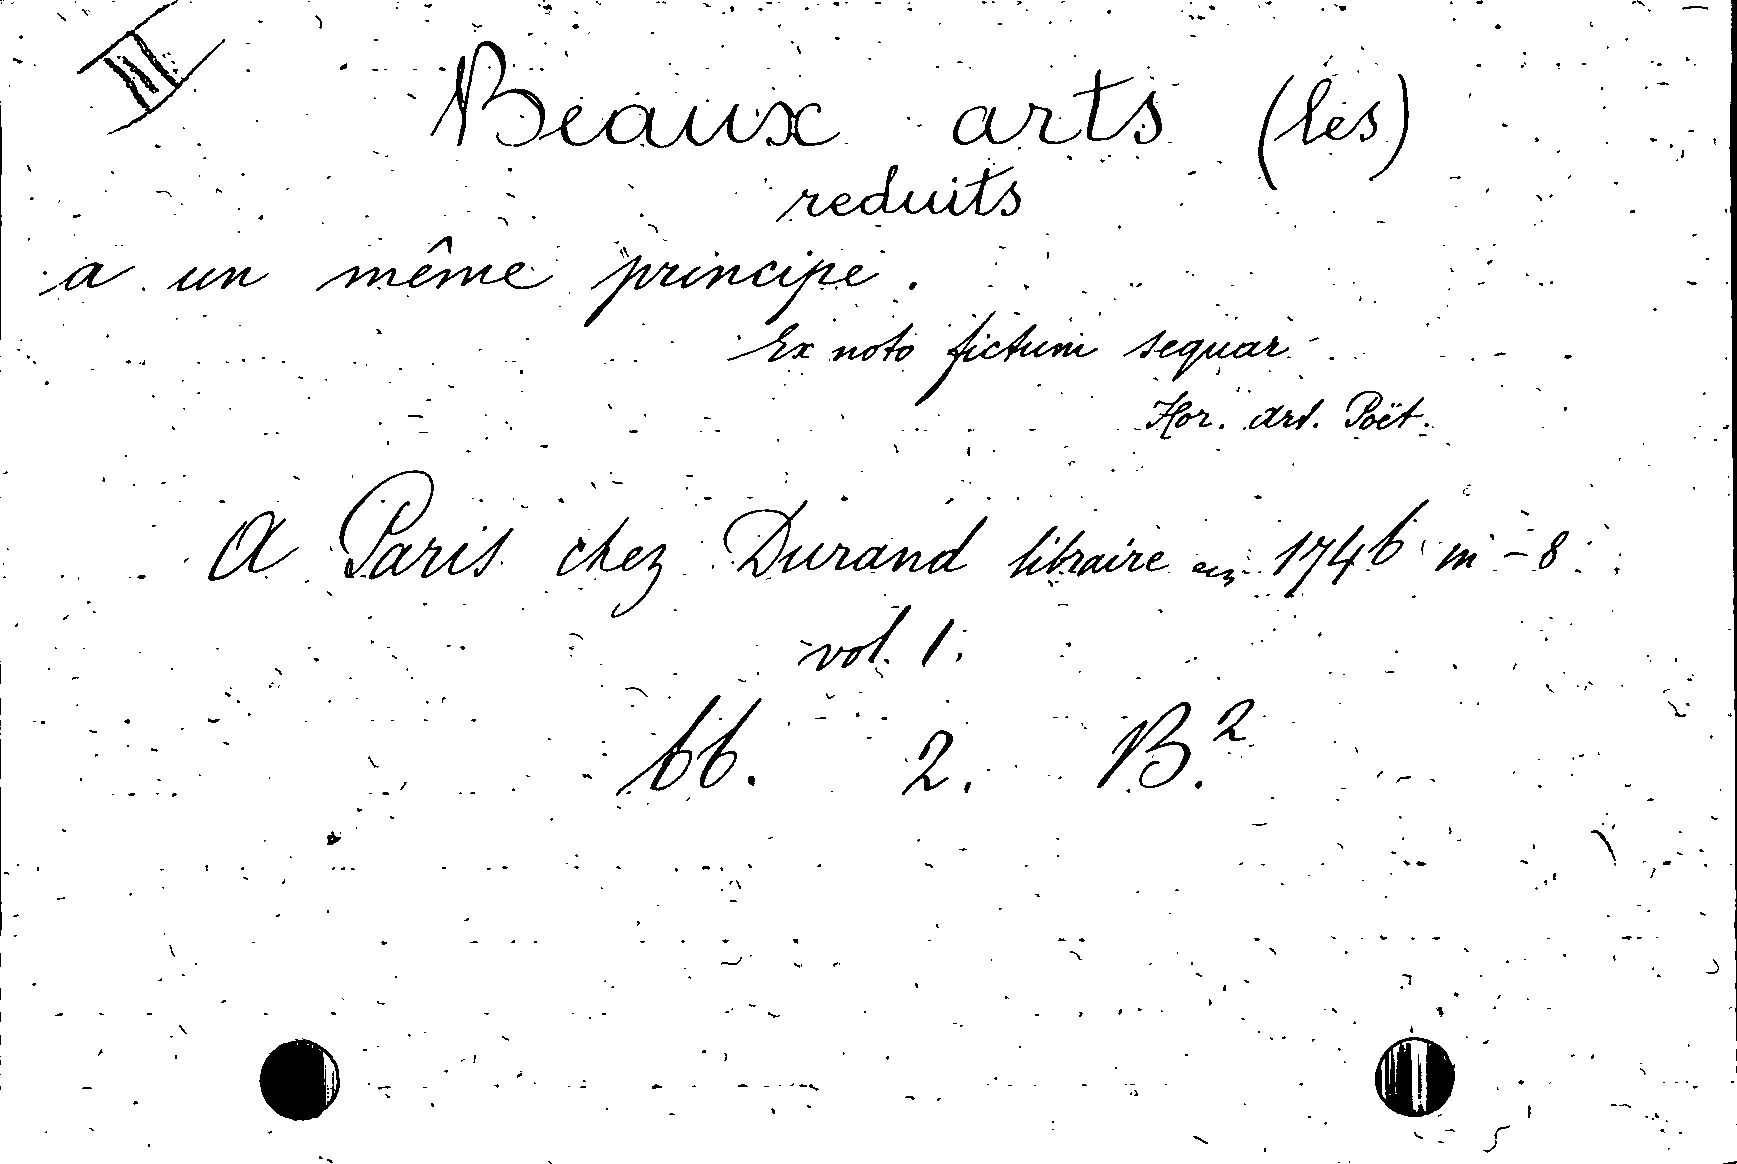 III
Beaux arts (les)
reduits
a un même principe.
Ex noto fictum sequar
Hor. art. Poët.
A Paris chez Durand libraire en 1746 in-8
vol. 1.
66. 2. B.²